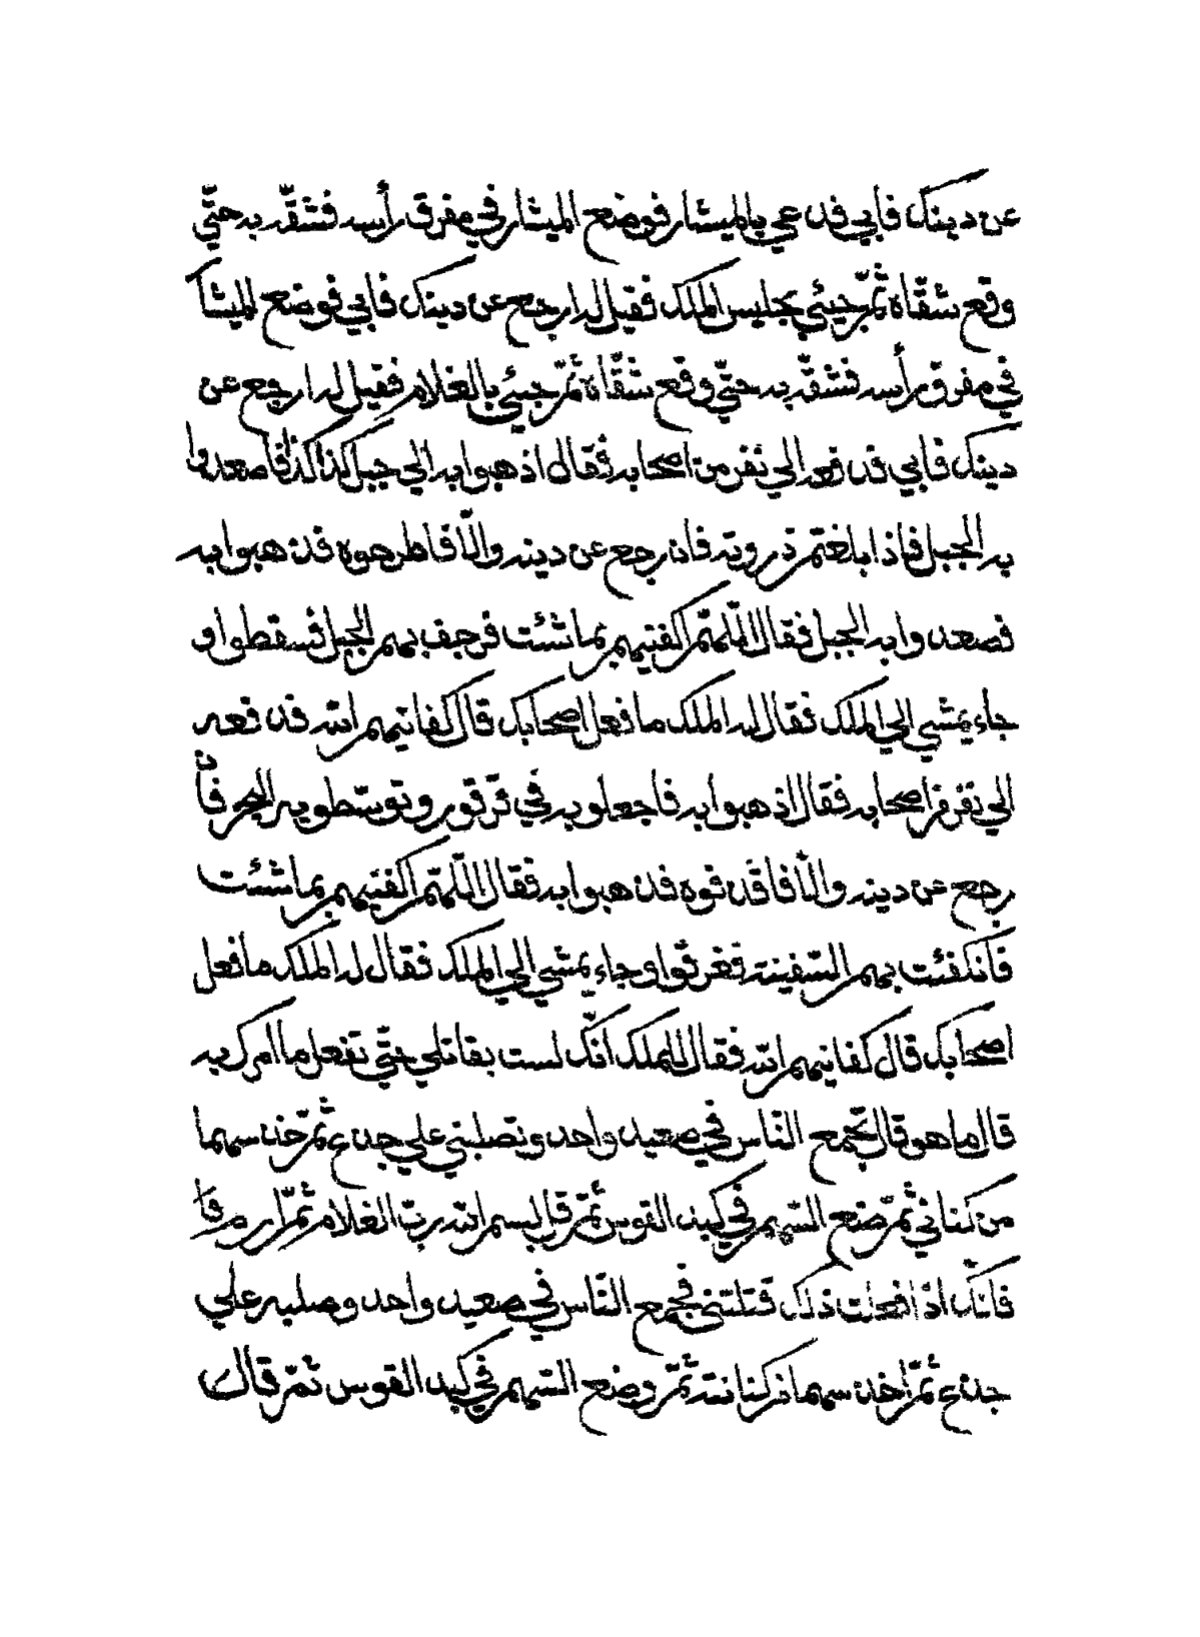 عن دينك فأبي فدعي بالميشار فوضع الميشار في مفرق رأسه فشقّه به حتّي
وقع شقّاه ثمّ جيئ بجليس الملك فقيل له ارجع عن دينك فأبي فوضع الميشا
في مفرق رأسه فشقّه به حتّي وقع شقّاه ثمّ جيئ بالغلام فقيل له ارجع عن
دينك فأبي فدفعه الي نفر من اصحابه فقال اذهبوا به الي جبل كذا كذا فاصعدوا
به الجبل فاذا بلغتم ذروته فان رجع عن دينه والّا فاطرحوه فذهبوا به
فصعدوا به الجبل فقال اللّهمّ اكفنيهم بما شئت فرجف بهم الجبل فسقطوا و
جاء يمشي الي الملك فقال له الملك ما فعل اصحابك قال كفانيهم الله فدفعه
الي نفر من اصحابه فقال اذهبوا به فاجعلوه في قرقور وتوسّطوا به البحر فان
رجع عن دينه والّا فاقذفوه فذهبوا به فقال اللّهمّ اكفنيهم بما شئت
فانكفئت بهم السّفينة فغرقوا و جاء يمشي الي الملك فقال له الملك ما فعل
اصحابك قال كفانيهم الله فقال للملك انّك لست بقاتلي حتّي تفعل ما امرك به
قال ما هو قال تجمع النّاس في صعيد واحد وتصلبني علي جذع ثمّ خذ سهما
من كنانتي ثمّ ضع السّهم في كبد القوس ثمّ قل بسم الله ربّ الغلام ثمّ ارم فا
فانّك اذا فعلت ذلك قتلتني فجمع النّاس في صعيد واحد وصلبه علي
جذع ثمّ اخذ سهما من كنانته ثمّ وضع السّهم في كبد القوس ثمّ قال